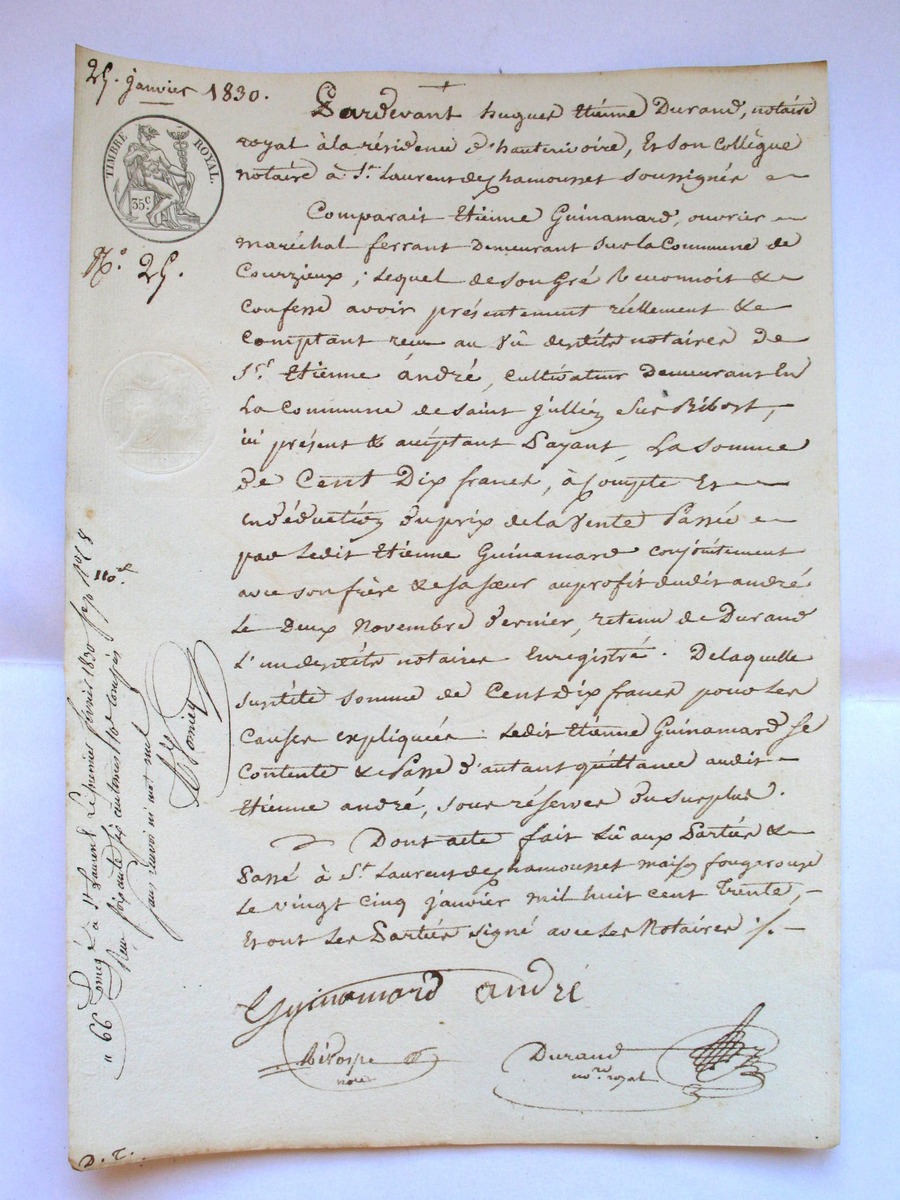 25. janvier 1830.
TIMBRE ROYAL.
35c
No. 25.
Pardevant hugues Etienne Durand, notaire
royal à la résidence d'hauterivoire, Et son Collègue
notaire à St. Laurent de chamousset soussignés
Comparait Etienne Guinamard, ouvrier
maréchal ferrant Demeurant sur la Commune de
Courzieux; Lequel de son Gré Reconnoit &
confesse avoir présentement réellement &
comptant reçu au vû desdits notaires de
Sr. Etienne André, Cultivateur Demeurant En
La Commune de saint jullien sur Bibost,
ici présent & acceptant Payant, La somme
de Cent Dix francs, à compte Et
en déduction du prix de la vente Passée
par Ledit Etienne Guinamard conjointement
avec son frère & sa sœur au profit dudit andré
Le Deux Novembre Dernier, retenu de Durand
L'un desdits notaires Enregistré. De laquelle
susdite somme de Cent Dix francs pour les
Causes expliquées Ledit Etienne Guinamard se
Contente & Passe d'autant quittance audit
Etienne andré, sous réserves du surplus.
Dont acte fait Lû aux Parties &
Passé à St. Laurent de chamousset maison fougerouse
Le vingt cinq janvier mil huit cent trente,
Et ont Les Parties signé avec Les Notaires ./.
Guinamard andré
Durand
nore. royal
110.
à St. Laurent Le premier février 1830
reçu soixante six centimes
D. T.